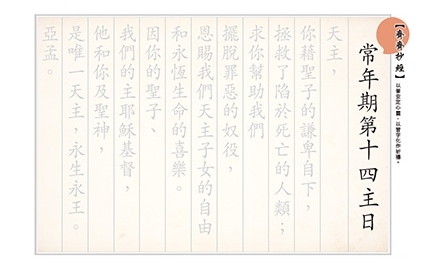 【齊齊抄經】
以筆安定心靈，以習字化作祈禱。
常年期第十四主日
天主，
你藉聖子的謙卑自下，
拯救了陷於死亡的人類；
求你幫助我們
擺脫罪惡的奴役，
恩賜我們天主子女的自由
和永恆生命的喜樂。
因你的聖子、
我們的主耶穌基督，
他和你及聖神，
是唯一天主，永生永王。
亞孟。